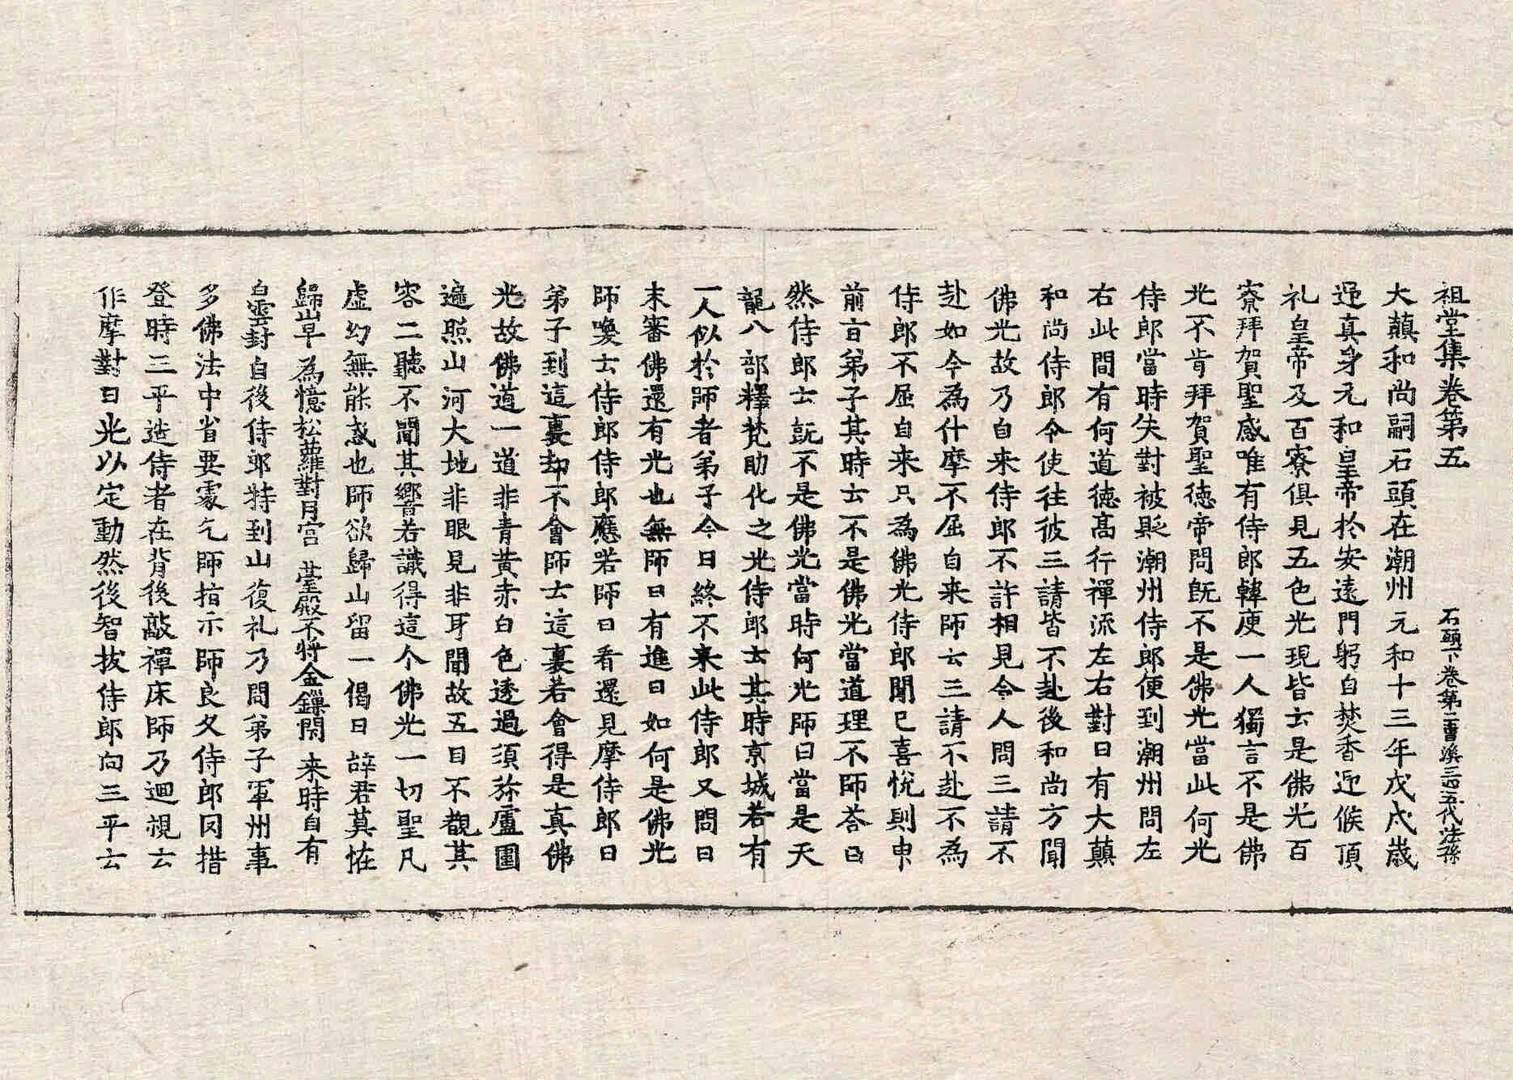 祖堂集卷第五 石頭下卷第二曹溪三四五代法孫
大顛和尚嗣石頭在潮州元和十三年戊戌歲
迎真身元和皇帝於安遠門躬自焚香迎候頂
礼皇帝及百寮俱見五色光現皆云是佛光百
寮拜賀聖感唯有侍郎韓庾一人獨言不是佛
光不肯拜賀聖德帝問既不是佛光當此何光
侍郎當時失對被貶潮州侍郎便到潮州問左
右此間有何道德高行禪流左右對曰有大顛
和尚侍郎令使往彼三請皆不赴後和尚方聞
佛光故乃自來侍郎不許相見令人問三請不
赴如今為什摩不屈自来師云三請不赴不為
侍郎不屈自来只為佛光侍郎聞已喜悅則申
前言弟子其時云不是佛光當道理不師荅曰
然侍郎云既不是佛光當時何光師曰當是天
龍八部釋梵助化之光侍郎云其時京城若有
一人似於師者弟子今日終不来此侍郎又問曰
未審佛還有光也無師曰有進曰如何是佛光
師喚云侍郎侍郎應若師曰看還見摩侍郎曰
弟子到這裏却不會師云這裏若會得是真佛
光故佛道一道非青黃赤白色透過須弥盧圍
遍照山河大地非眼見非耳聞故五目不覩其
容二聽不聞其響若識得這个佛光一切聖凡
虛幻無能惑也師欲歸山留一偈曰 辝君莫恠
歸山早 為憶松蘿對月宮 臺殿不將金鏁閇 来時自有
白雲封自後侍郎特到山復礼乃問弟子軍州事
多佛法中省要處乞師指示師良久侍郎罔措
登時三平造侍者在背後敲禪床師乃迴視云
作摩對曰先以定動然後智拔侍郎向三平云